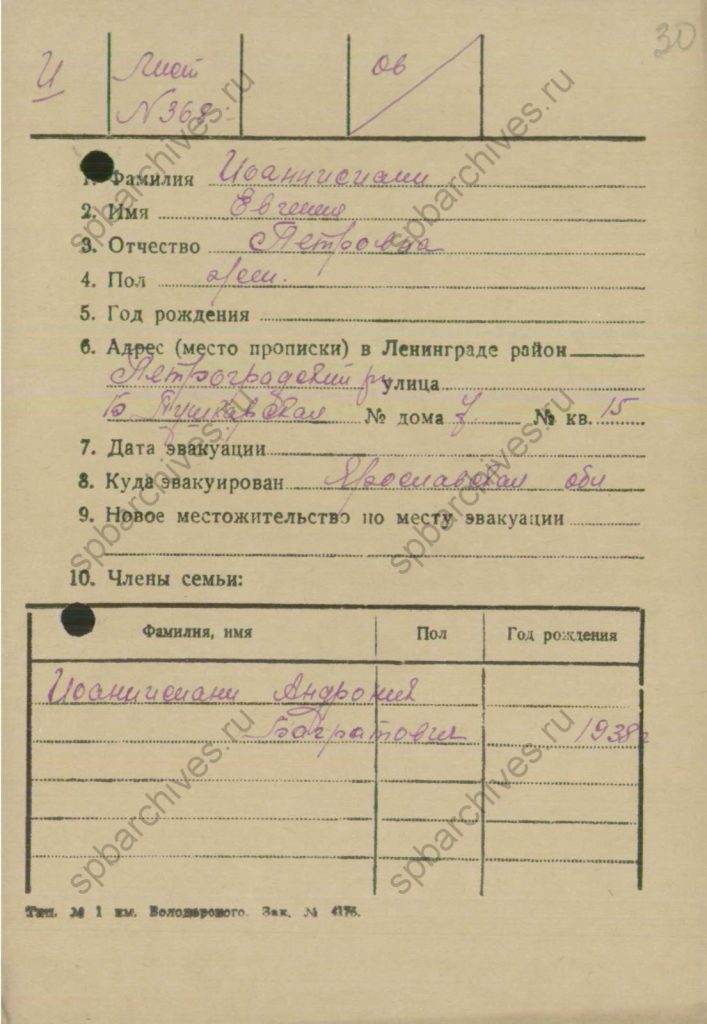 30
И Лист об
№368
1. Фамилия Иоаннисиани
2. Имя Евгения
3. Отчество Петровна
4. Пол жен.
5. Год рождения
6. Адрес (место прописки) в Ленинграде район
Петроградский р улица
Б Пушкарская № дома 7 № кв. 15
7. Дата эвакуации
8. Куда эвакуирован Ярославская обл
9. Новое местожительство по месту эвакуации
10. Члены семьи:
Фамилия, имя Пол Год рождения
Иоанисиани Андроник
Багратович 1938г
Тип. № 1 им. Володарского. Зак. № 4176.
spbarchives.ru
spbarchives.ru
spbarchives.ru
spbarchives.ru
spbarchives.ru
spbarchives.ru